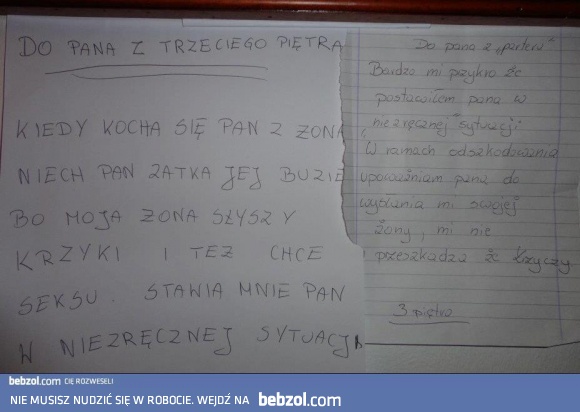 DO PANA Z TRZECIEGO PIĘTRA
KIEDY KOCHA SIĘ PAN Z ŻONĄ
NIECH PAN ZATKA JEJ BUZIE
BO MOJA ŻONA SŁYSZY
KRZYKI I TEZ CHCE
SEKSU. STAWIA MNIE PAN
W NIEZRĘCZNEJ SYTUACJI
Do pana z „parteru"
Bardzo mi przykro że
postawiłem pana w
niezręcznej sytuacji
W ramach odszkodowania
upoważniam pana do
wysłania mi swojej
żony, mi nie
przeszkadza że krzyczy
3 piętro
bebzol.com CIĘ ROZWESELI
NIE MUSISZ NUDZIĆ SIĘ W ROBOCIE. WEJDŹ NA bebzol.com